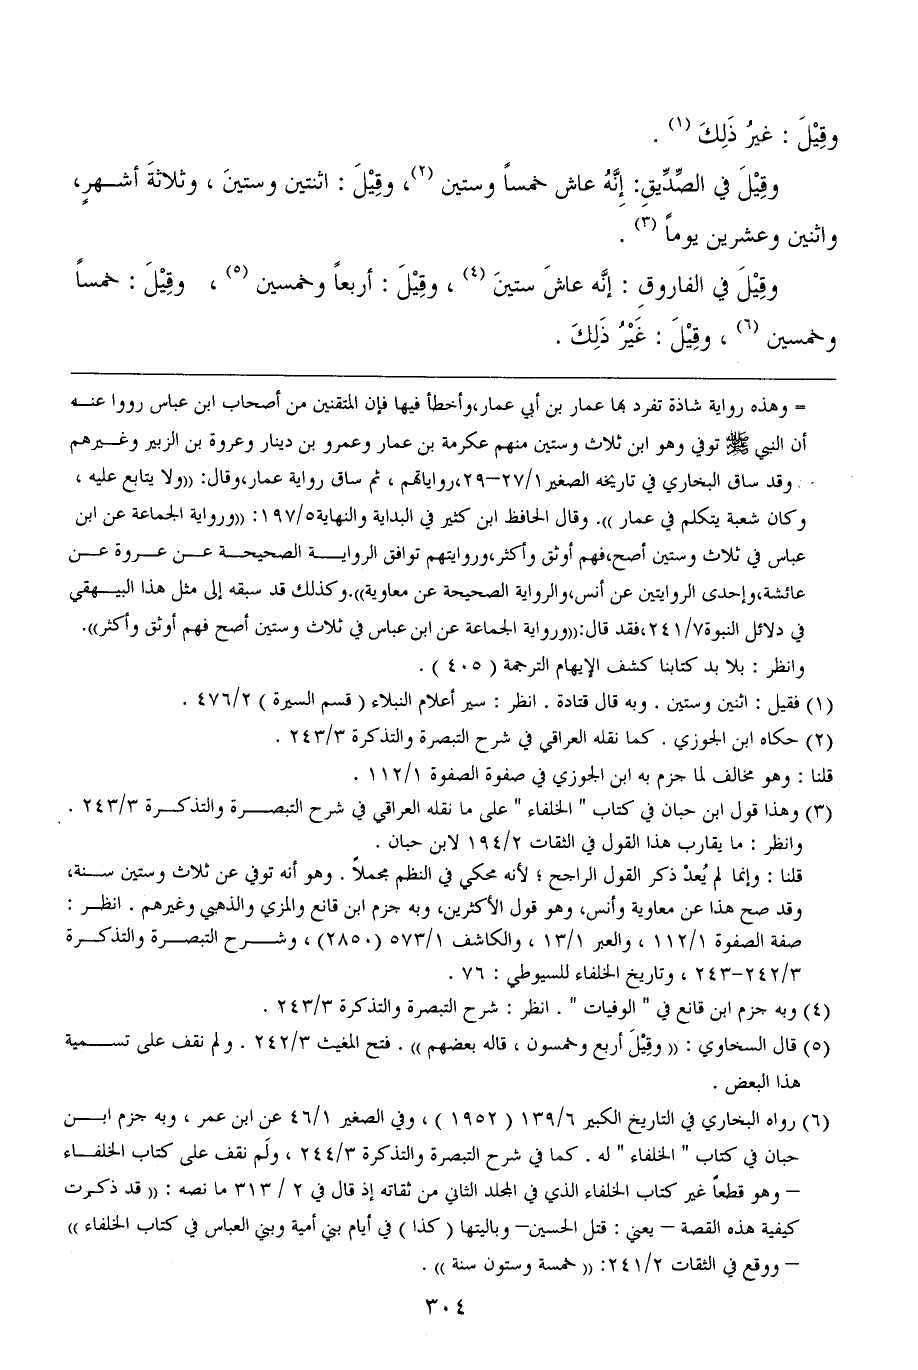 وقِيْلَ : غيرُ ذَلِكَ (١) .
وقِيْلَ في الصِّدِّيقِ: إنَّهُ عاش خمساً وستين (٢)، وقِيْلَ : اثنتين وستينَ ، وثلاثةَ أشـهرٍ،
واثنين وعشرين يوماً (٣) .
وقِيْلَ في الفاروقِ : إنَّه عاشَ ستينَ (٤) ، وقِيْلَ : أربعاً وخمسين (٥) ، وقِيْلَ : خمساً
وخمسين (٦) ، وقِيْلَ : غَيْرُ ذَلِكَ .
= وهذه رواية شاذة تفرد بها عمار بن أبي عمار،وأخطأ فيها فإن المتقنين من أصحاب ابن عباس رووا عنـــه
أن النبي ﷺ توفي وهو ابن ثلاث وستين منهم عكرمة بن عمار وعمرو بن دينار وعروة بن الزبير وغـــيرهم
. وقد ساق البخاري في تاريخه الصغير ٢٧/١–٢٩،رواياتهم ، ثم ساق رواية عمار،وقال: ((ولا يتابع عليه ،
وكان شعبة يتكلم في عمار )). وقال الحافظ ابن كثير في البداية والنهاية١٩٧/٥: ((ورواية الجماعة عن ابن
عباس في ثلاث وستين أصح،فهم أوثق وأكثر،وروايتهم توافق الروايـــة الصحيحـــة عـــن عـــروة عـــن
عائشة،وإحدى الروايتين عن أنس،والرواية الصحيحة عن معاوية)).وكذلك قد سبقه إلى مثل هذا البيـــهقي
في دلائل النبوة٢٤١/٧،فقد قال:((ورواية الجماعة عن ابن عباس في ثلاث وستين أصح فهم أوثق وأكثر)).
وانظر : بلا بد كتابنا كشف الإيهام الترجمة ( ٤٠٥ ) .
(١) فقيل : اثنين وستين . وبه قال قتادة . انظر : سير أعلام النبلاء ( قسم السيرة ) ٤٧٦/٢ .
(٢) حكاه ابن الجوزي . كما نقله العراقي في شرح التبصرة والتذكرة ٢٤٣/٣ .
قلنا : وهو مخالف لما جزم به ابن الجوزي في صفوة الصفوة ١١٢/١ .
(٣) وهذا قول ابن حبان في كتاب " الخلفاء " على ما نقله العراقي في شرح التبصـــرة والتذكـــرة ٢٤٣/٣ .
وانظر : ما يقارب هذا القول في الثقات ١٩٤/٢ لابن حبان .
قلنا : وإنما لم يُعدْ ذكر القول الراجح ؛ لأنه محكي في النظم مجملاً . وهو أنه توفي عن ثلاث وستين ســـنة،
وقد صح هذا عن معاوية وأنس، وهو قول الأكثرين، وبه جزم ابن قانع والمزي والذهبي وغيرهم . انظـــر :
صفة الصفوة ١١٢/١ ، والعبر ١٣/١ ، والكاشف ٥٧٣/١ (٢٨٥٠) ، وشـــرح التبصـــرة والتذكـــرة
٢٤٢/٣–٢٤٣ ، وتاريخ الخلفاء للسيوطي : ٧٦ .
(٤) وبه جزم ابن قانع في " الوفيات " . انظر : شرح التبصرة والتذكرة ٢٤٣/٣ .
(٥) قال السخاوي : (( وقِيْلَ أربع وخمسون ، قاله بعضهم )) . فتح المغيث ٢٤٢/٣ . ولم نقف على تســـمية
هذا البعض .
(٦) رواه البخاري في التاريخ الكبير ١٣٩/٦ ( ١٩٥٢ ) ، وفي الصغير ٤٦/١ عن ابن عمر ، وبه جزم ابـــن
حبان في كتاب " الخلفاء " له . كما في شرح التبصرة والتذكرة ٢٤٤/٣ ، ولَم نقف على كتاب الخلفـــاء
– وهو قطعاً غير كتاب الخلفاء الذي في المجلد الثاني من ثقاته إذ قال في ٢ / ٣١٣ ما نصه : (( قد ذكـرت
كيفية هذه القصة – يعني : قتل الحسين– وباليتها ( كذا ) في أيام بني أمية وبني العباس في كتاب الخلفاء ))
– ووقع في الثقات ٢٤١/٢: (( خمسة وستون سنة )) .
٣٠٤